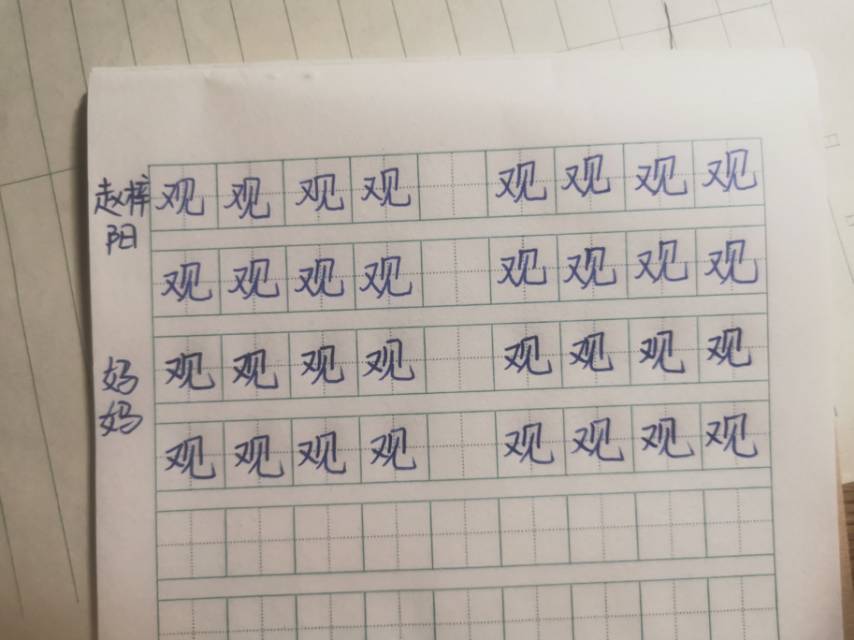 赵梓 观观观观 观观观观
阳
观观观观 观观观观
妈 观观观观 观观观观
妈
观观观观 观观观观